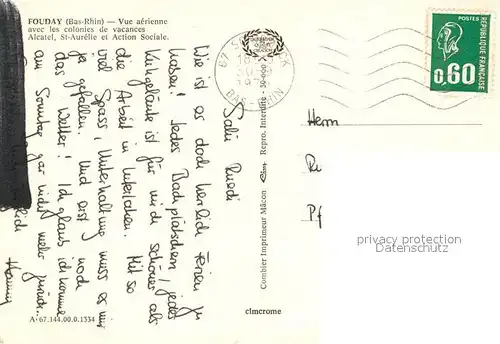 FOUDAY (Bas-Rhin) — Vue aérienne
avec les colonies de vacances
Alcatel, St-Aurélie et Action Sociale.
Salü Ruedi
Wie ist es doch herrlich Ferien zu
haben! Jedes Bachplätschern, jedes
Kuhgeläute ist für mich schöner als
die Arbeit in Interlaken. Mit so
viel Spass, Unterhaltung muss es mir
ja gefallen. Und erst noch
das Wetter! Ich glaub ich komme
am Sonntag gar nicht mehr zurück.
Hanny
A-67.144.00.0.1334
Combier Imprimeur Mâcon
Repro. Interdite
cimcrome
67
BAS-RHIN
REPUBLIQUE FRANÇAISE
0,60
Herrn
Ru
Pf
privacy protection
Datenschutz